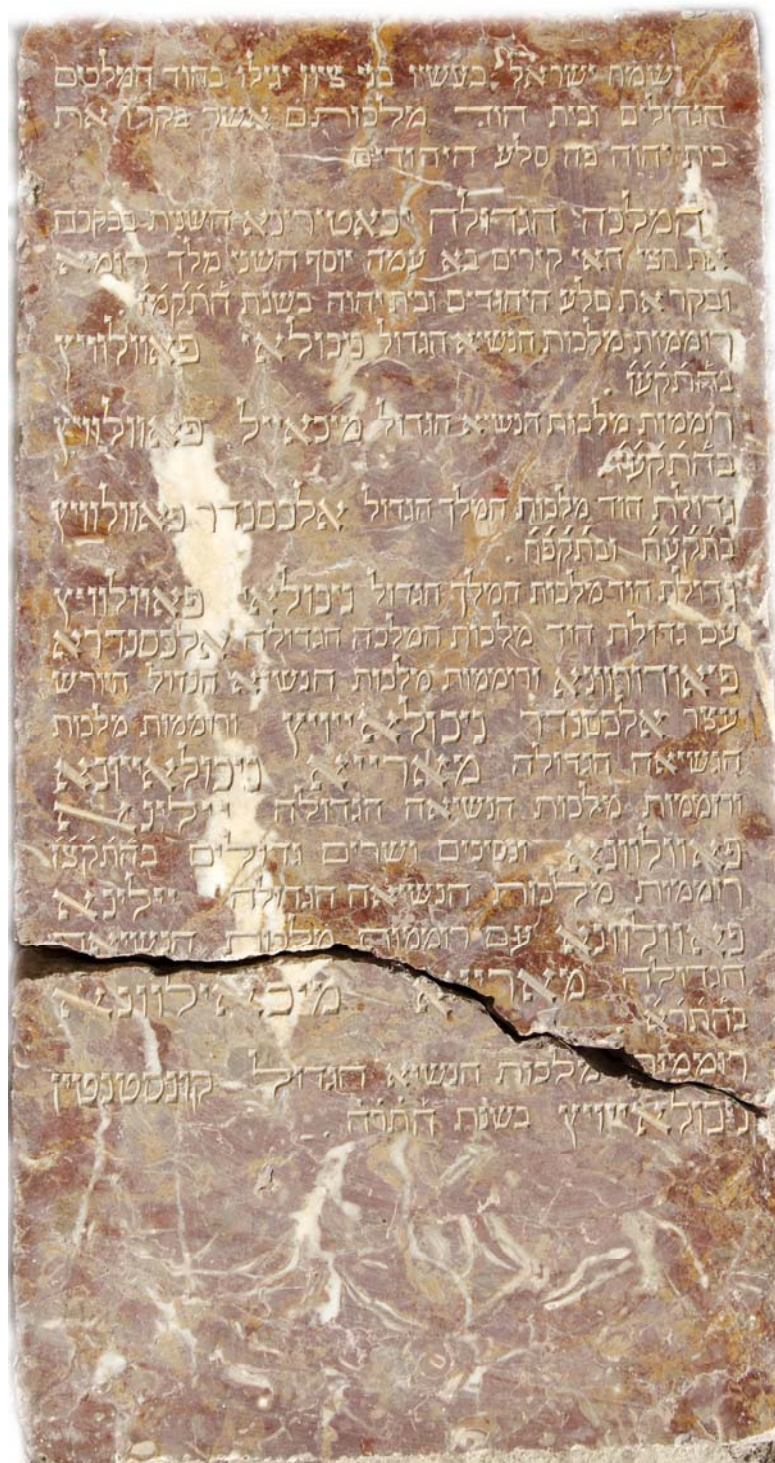 ישמח ישראל בעשיו בני ציון יגילו בהוד המלכים
הגדולים ובית הוד מלכותם אשר בקרו את
בית יהוה בה סלע היהודים
המלכה הגדולה יכאטירינא השנית בבקרם
את חצי האי קירים בא עמה יוסף השני מלך רומיא
ובקר את סלע היהודים ובית יהוה בשנת התקמז .
רוממות מלכות הנשיא הגדול ניכולאי פאוולוויץ
בהתקעו .
רוממות מלכות הנשיא הגדול מיכאייל פאוולוויץ
בהתקעח .
גדולת הוד מלכות המלך הגדול אלכסנדר פאוולוויץ
בתקעח ובתקפה .
גדולת הוד מלכות המלך הגדול ניכולאי פאוולוויץ
עם גדולת הוד מלכות המלכה הגדולה אלכסנדרא
פיאודורוונא ורוממות מלכות הנשיא הגדול היורש
עצר אלכסנדר ניכולאייויץ ורוממות מלכות
הנשיאה הגדולה מארייא ניכולאיוונא
ורוממות מלכות הנשיאה הגדולה יילינא
פאוולוונא ונסיכים ושרים גדולים בהתקצז
רוממות מלכות הנשיאה הגדולה יילינא
פאוולוונא עם רוממות מלכות הנשיאה
הגדולה מארייא מיכאילוונא
בהתרא
רוממות מלכות הנשיא הגדול קונסטנטין
ניכולאייויץ בשנת התרה .